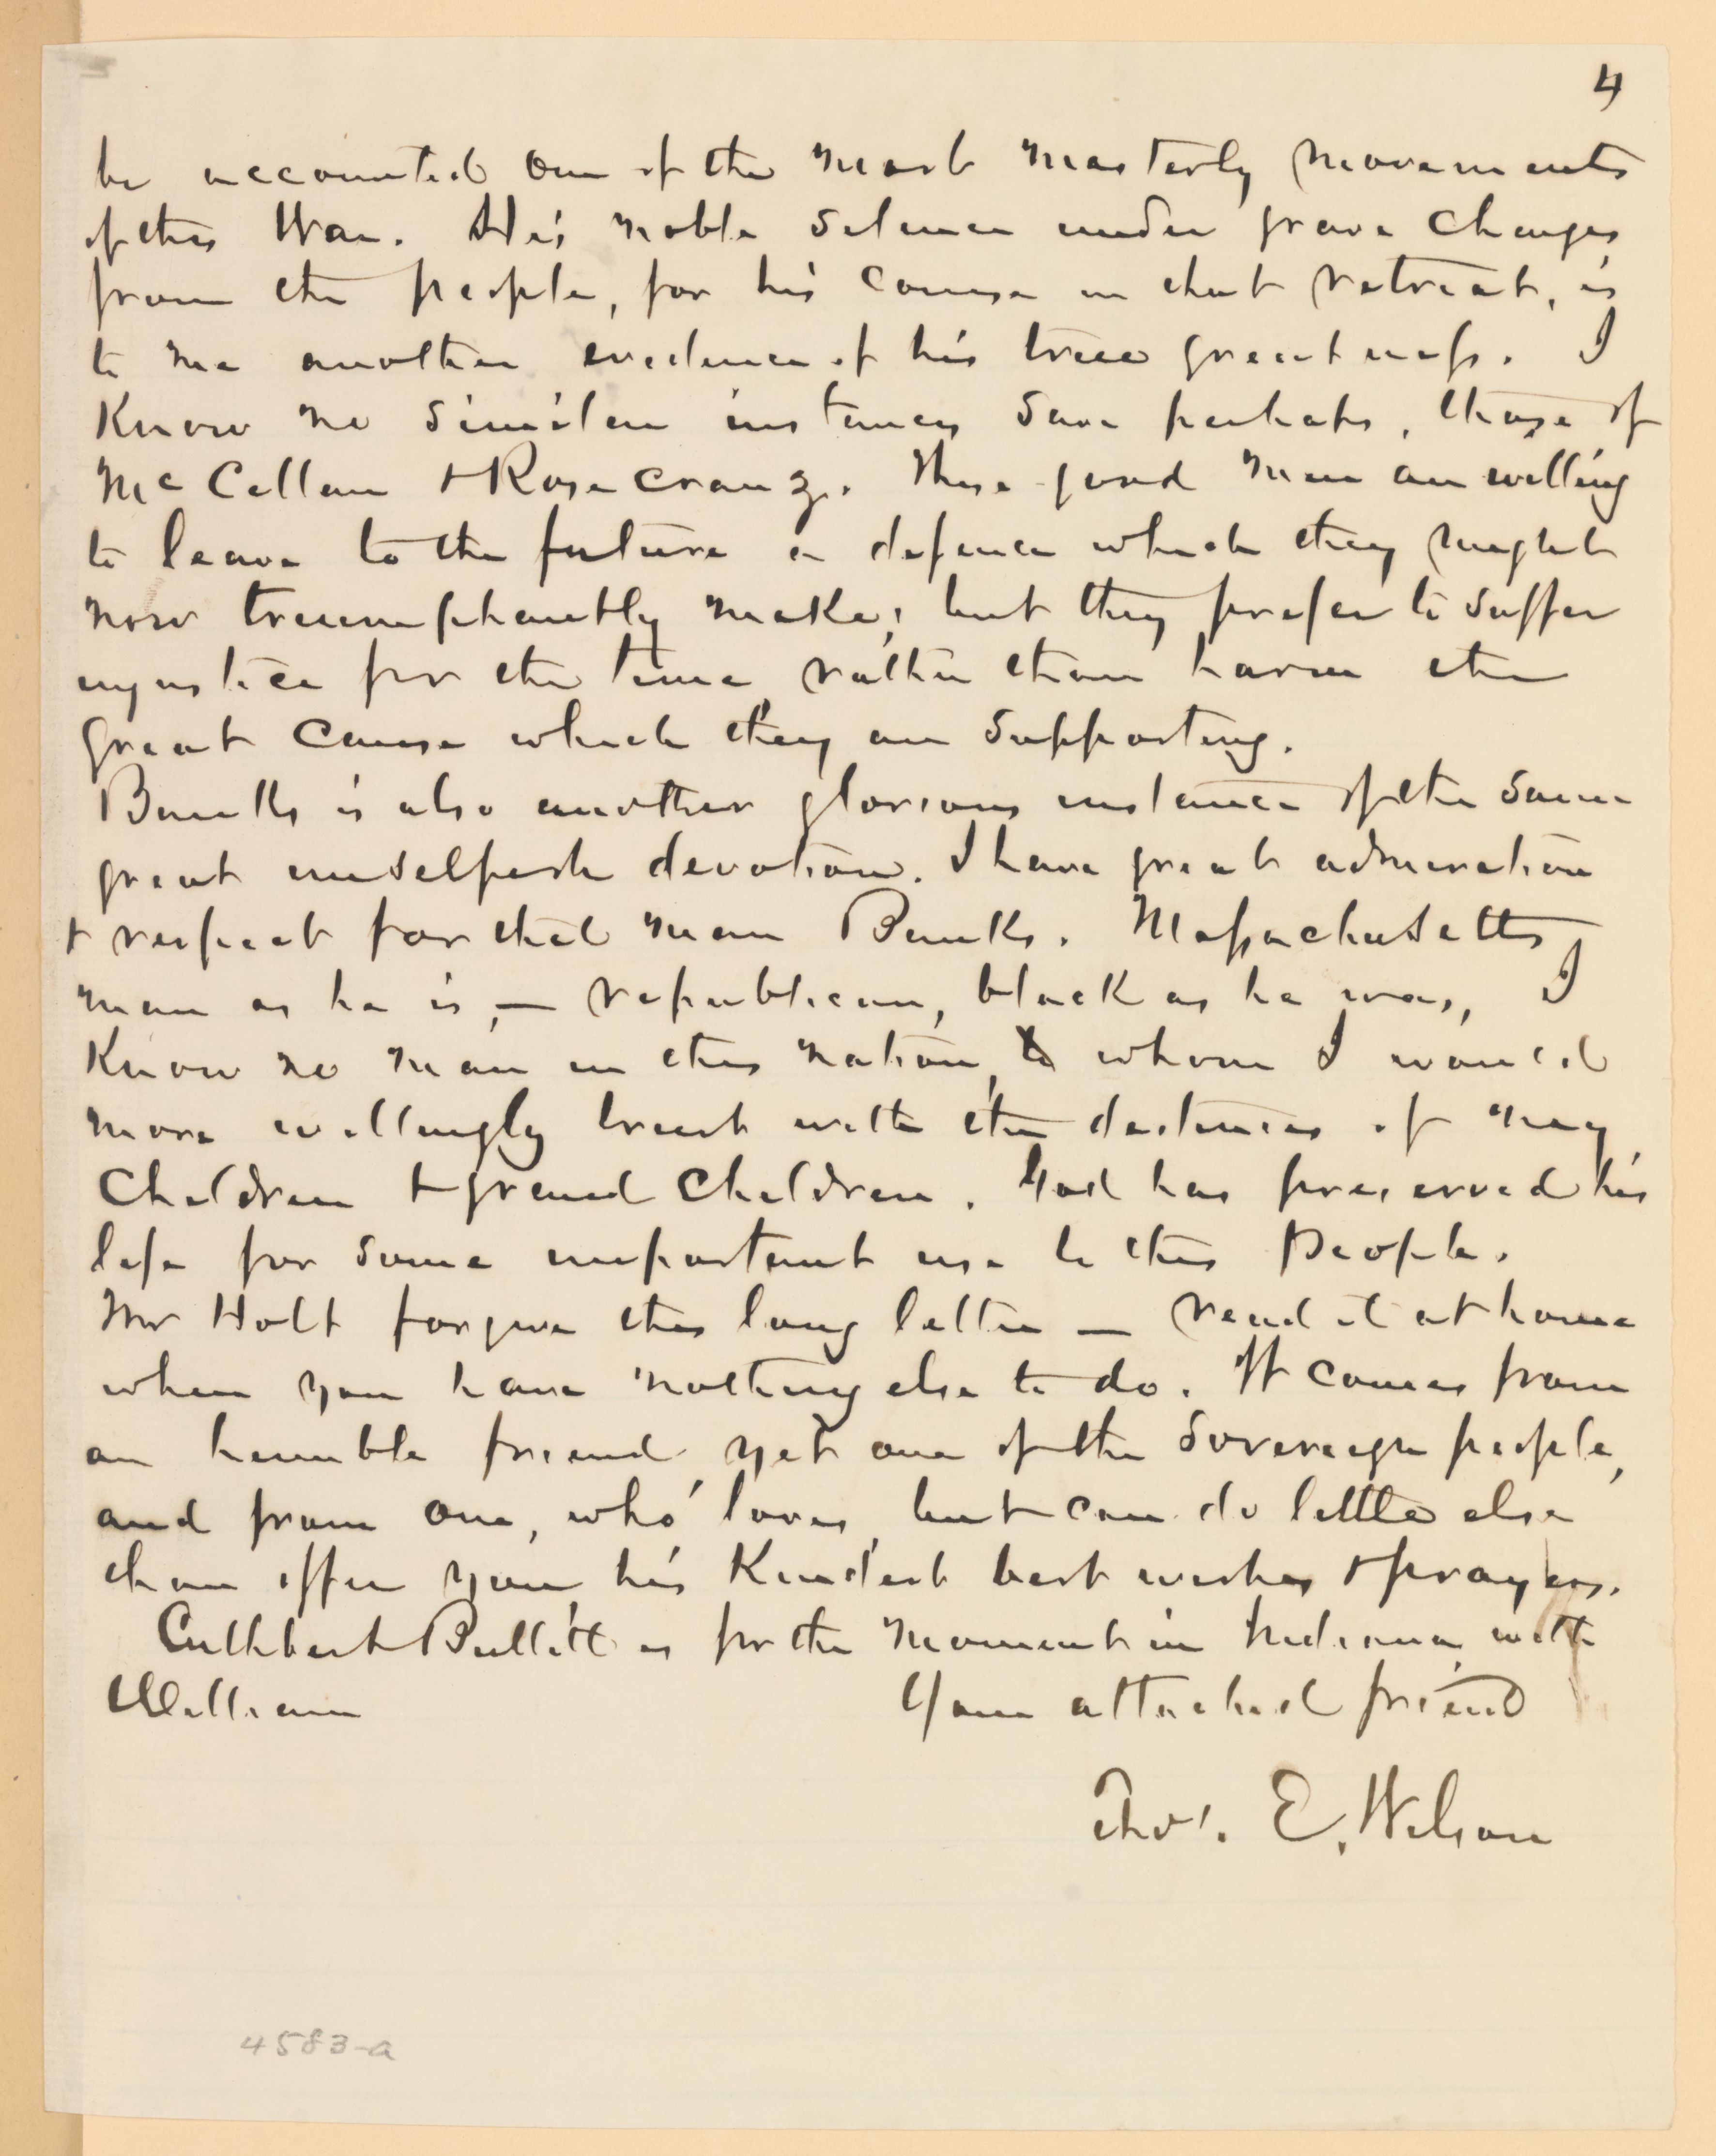 4
be accounted one of the most masterly movements
of this War. His noble silence under grave charges
from the people, for his course in that retreat, is
to me another evidence of his true greatness. I
Know no similar instances save perhaps, those of
McCellan + Rosecranz. These good men are willing
to leave to the future a defence which they might
now triumphantly make; but they prefer to suffer
injustice for the time, rather than harm the
great cause which they are supporting.
Banks is also another glorious instance of the same
great unselfish devotion. I have great admiration
+ respect for that man Banks. Massachusetts
man as he is, — republican, black as he was, I
Know no man in this nation, whom I would
more willingly trust with the destinies of my
Children + grand Children. God has preserved his
life for some important use to this People.
Mr Holt forgive this long letter — read it at home
when you have nothing else to do. It comes from
an humble friend, yet one of the Sovereign people,
and from one, who loves, but can do little else
than offer you, his Kindest best wishes + prayers.
Cuthbert Bullitt is for the moment in Indiana, with
William
Your attached friend
Thos. E. Wilson
4583-a